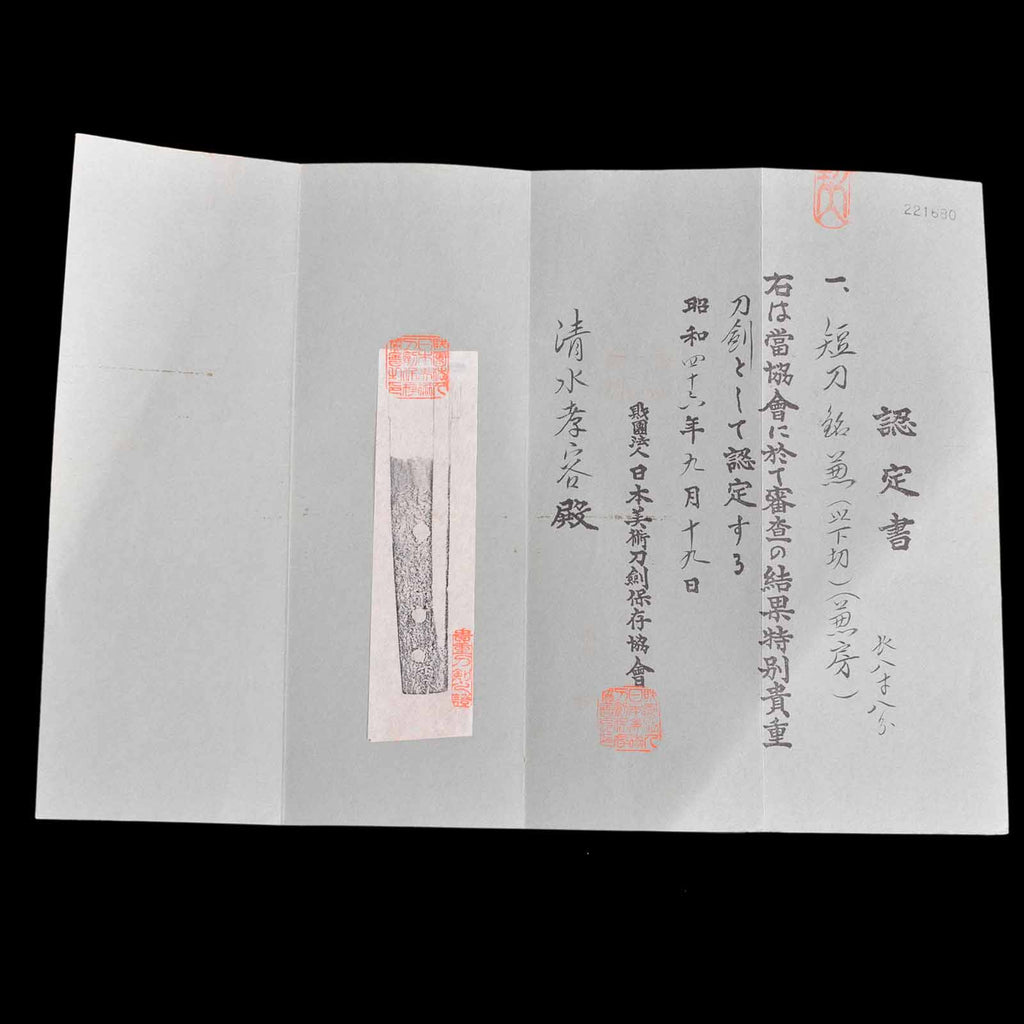 221680
認定書
一、短刀 銘 兼(以下切)(兼房)
長八寸八分
右は當協會に於て審査の結果特別貴重
刀劍として認定する
昭和四十六年九月十九日
財團法人日本美術刀劍保存協會
清水孝容殿